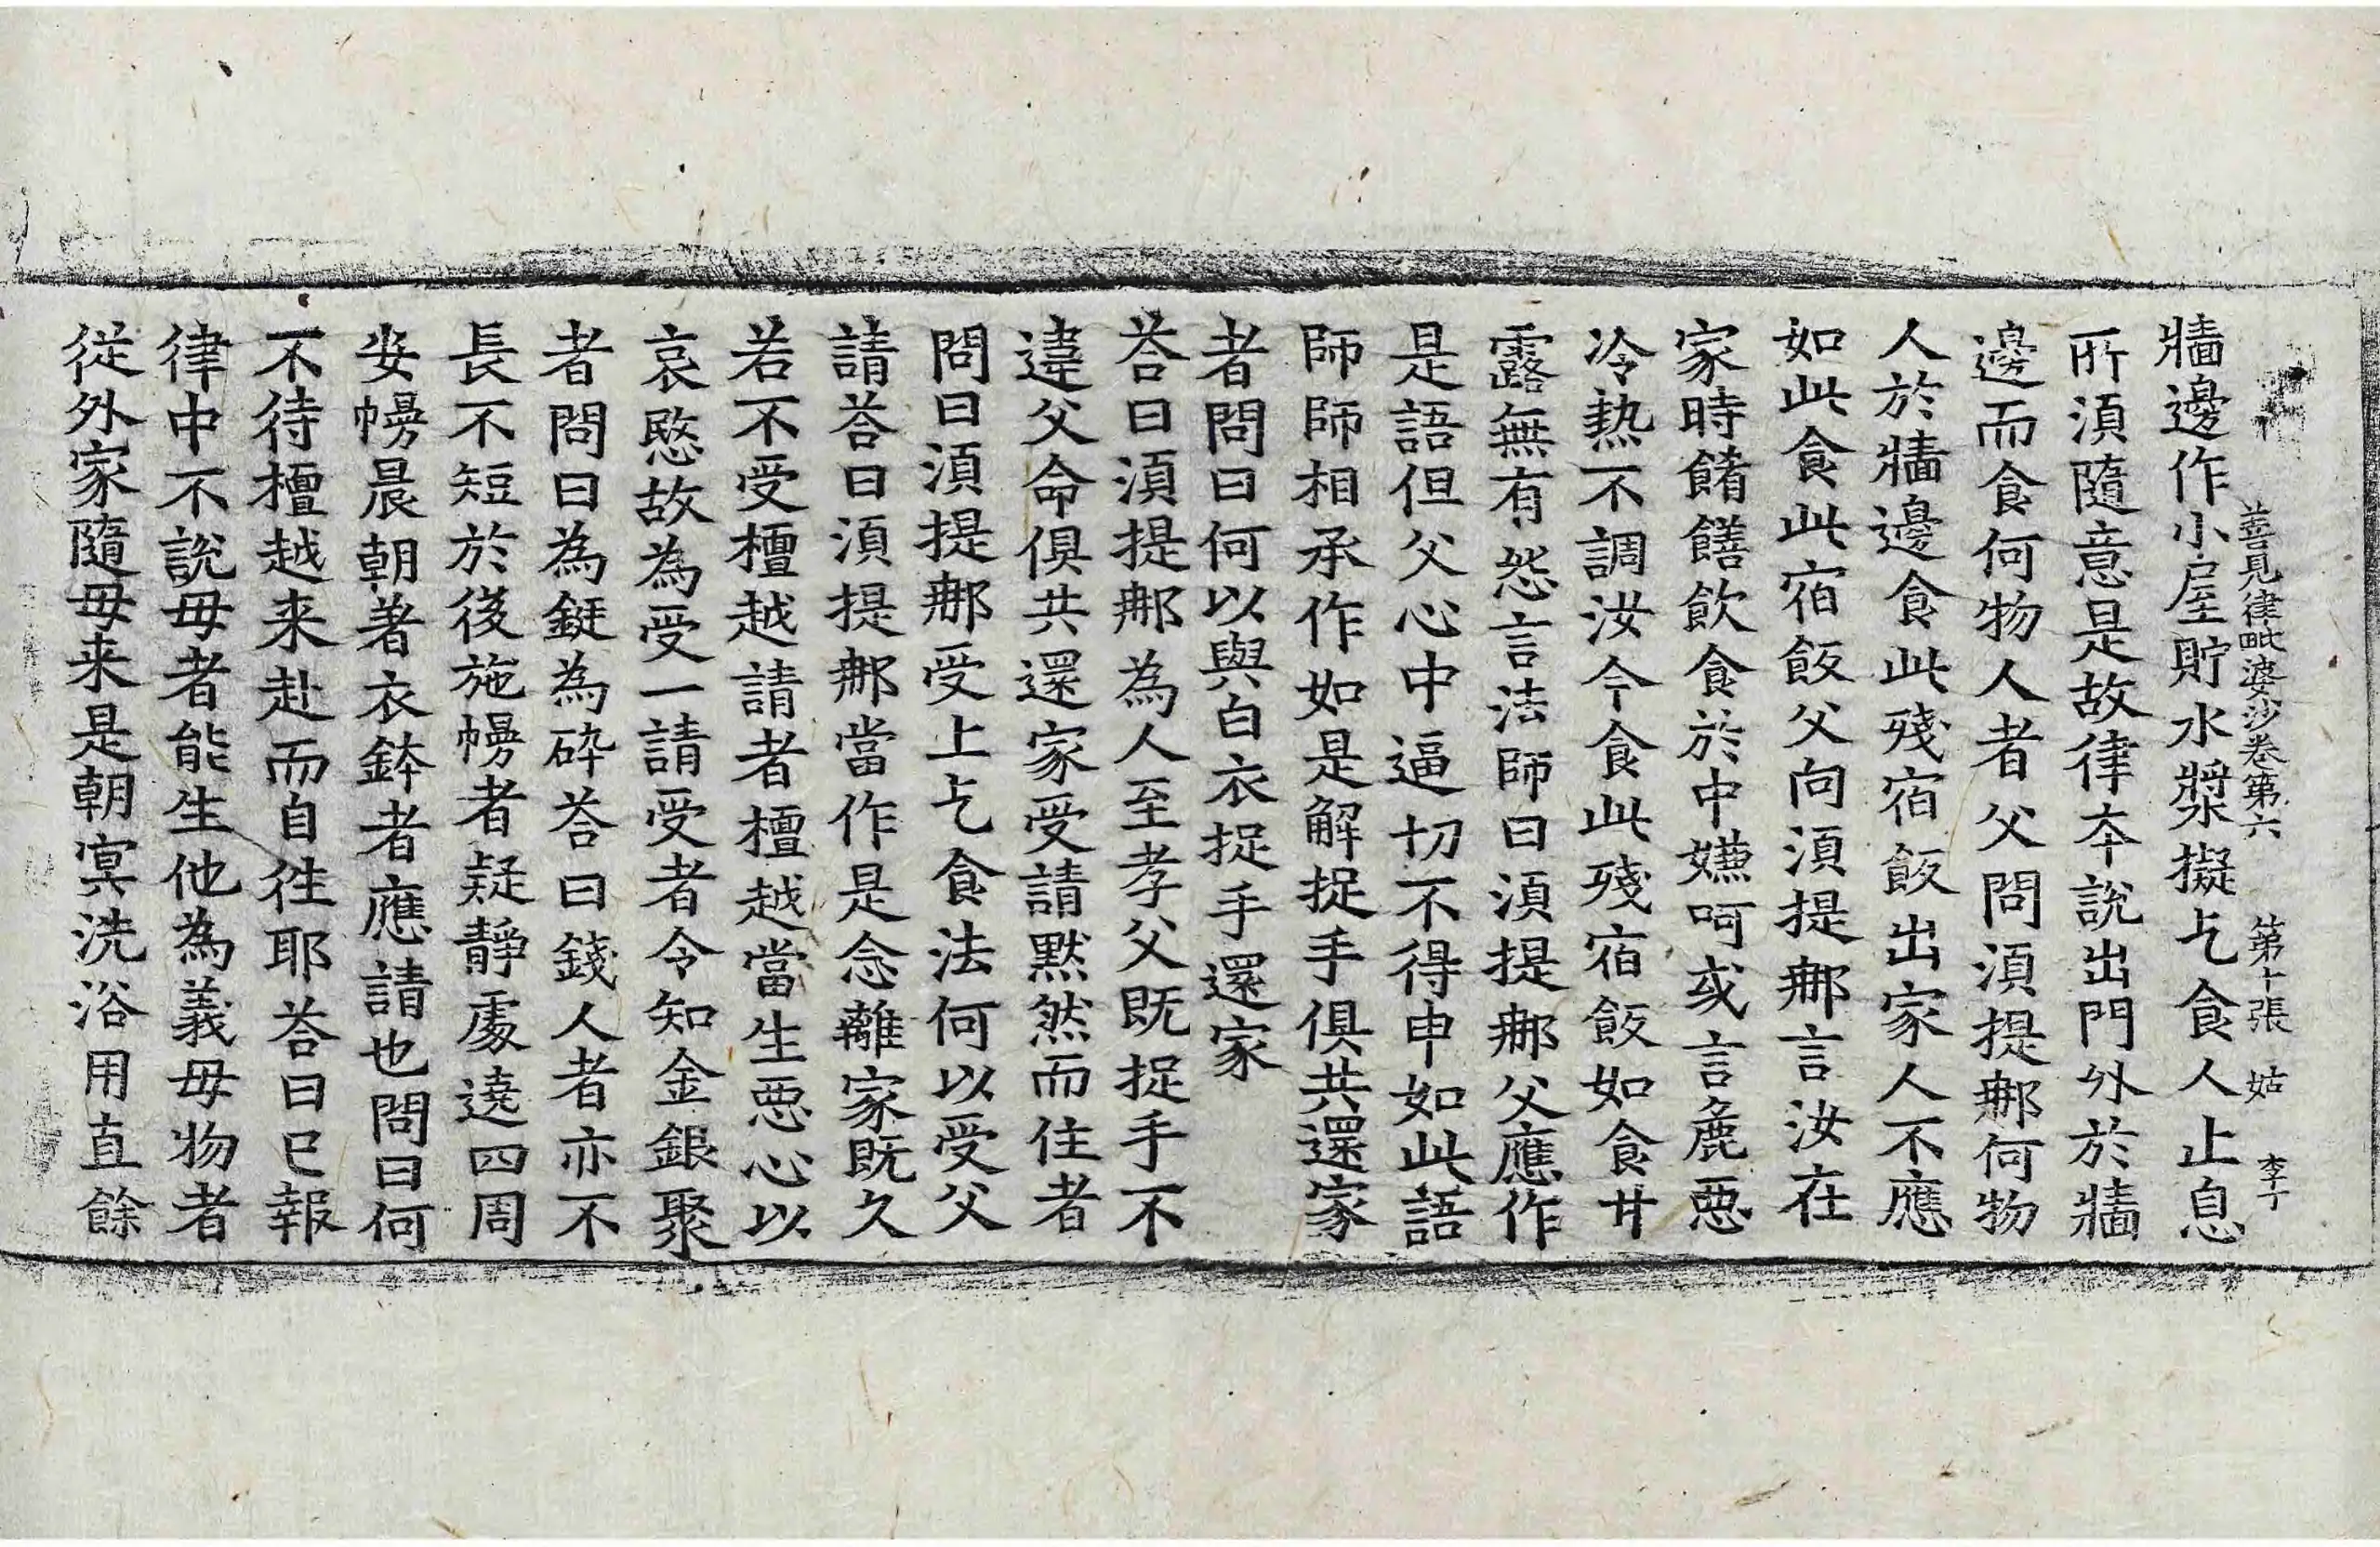 善見律毗婆沙卷第六 第十張 姑 李丁
牆邊作小屋貯水漿擬乞食人止息
所湏隨意是故律夲說出門外於牆
邊而食何物人者父問湏提那何物
人於牆邊食此殘宿飯出家人不應
如此食此宿飯父向湏提那言汝在
家時餚饍飲食於中嫌呵或言麁惡
冷熱不調汝今食此殘宿飯如食甘
露無有怨言法師曰湏提那父應作
是語但父心中逼切不得申如此語
師師相承作如是解捉手俱共還家
者問曰何以與白衣捉手還家
荅曰湏提那為人至孝父既捉手不
違父命俱共還家受請默然而住者
問曰湏提那受上乞食法何以受父
請荅曰湏提那當作是念離家既久
若不受檀越請者檀越當生惡心以
哀愍故為受一請受者令知金銀聚
者問曰為鋌為碎荅曰錢人者亦不
長不短於後施幔者疑靜處遶四周
安幔晨朝著衣鉢者應請也問曰何
不待檀越来赴而自往耶荅曰已報
律中不說母者能生他為義母物者
從外家隨母来是朝㝠洗浴用直餘